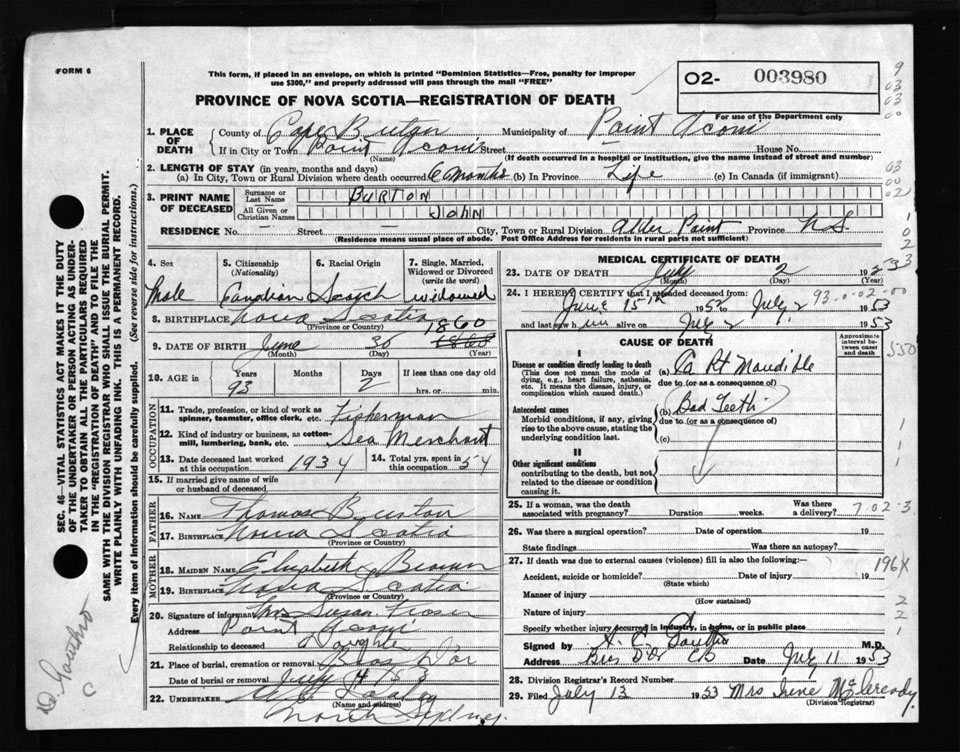 FORM 6
This form, if placed in an envelope, on which is printed "Dominion Statistics—Free, penalty for improper
use $300," and properly addressed will pass through the mail "FREE"
O2- 003980
For use of the Department only
PROVINCE OF NOVA SCOTIA—REGISTRATION OF DEATH
1. PLACE OF DEATH
County of Cape Breton Municipality of Point Aconi
If in City or Town Point Aconi Street House No.
(Name) (If death occurred in a hospital or institution, give the name instead of street and number)
2. LENGTH OF STAY (in years, months and days)
(a) In City, Town or Rural Division where death occurred 6 Months (b) In Province Life (c) In Canada (if immigrant)
3. PRINT NAME OF DECEASED
Surname or Last Name BURTON
All Given or Christian Names JOHN
RESIDENCE No. — Street — City, Town or Rural Division Alder Point Province N.S.
(Residence means usual place of abode. Post Office Address for residents in rural parts not sufficient)
4. Sex Male
5. Citizenship (Nationality) Canadian
6. Racial Origin Scotch
7. Single, Married, Widowed or Divorced (write the word) widowed
8. BIRTHPLACE Nova Scotia
(Province or Country)
1860
9. DATE OF BIRTH June 30 1860
(Month) (Day) (Year)
10. AGE in Years 93 Months Days 2 If less than one day old
hrs. or min.
OCCUPATION
11. Trade, profession, or kind of work as
spinner, teamster, office clerk, etc. Fisherman
12. Kind of industry or business, as cotton-
mill, lumbering, bank, etc. Sea Merchant
13. Date deceased last worked
at this occupation 1934
14. Total yrs. spent in
this occupation 54
15. If married give name of wife
or husband of deceased
FATHER
16. NAME Thomas Burton
17. BIRTHPLACE Nova Scotia
(Province or Country)
MOTHER
18. MAIDEN NAME Elizabeth Brown
19. BIRTHPLACE Nova Scotia
(Province or Country)
20. Signature of informant Mrs Susan Fraser
Address Point Aconi
Relationship to deceased Daughter
21. Place of burial, cremation or removal Bras D'or
Date of burial or removal July 4 53
22. UNDERTAKER
(Name and address)
North Sydney.
MEDICAL CERTIFICATE OF DEATH
23. DATE OF DEATH July 2 1953
(Month) (Day)
24. I HEREBY CERTIFY that I attended deceased from:
June 15th 1952 to July 2 1953
and last saw him alive on July 2 1953
93.0.02.00
CAUSE OF DEATH
Approximate interval between onset and death
I
Disease or condition directly leading to death
(This does not mean the mode of
dying, e.g., heart failure, asthenia,
etc. It means the disease, injury, or
complication which caused death.)
(a) Ca Rt Mandible
due to (or as a consequence of)
Antecedent causes
Morbid conditions, if any, giving
rise to the above cause, stating the
underlying condition last.
(b) Bad Teeth
due to (or as a consequence of)
(c)
II
Other significant conditions
contributing to the death, but not
related to the disease or condition
causing it.
25. If a woman, was the death
associated with pregnancy? Duration weeks. Was there
a delivery?
7.02-3
26. Was there a surgical operation? Date of operation 19
State findings Was there an autopsy?
27. If death was due to external causes (violence) fill in also.
196X
Accident, suicide or homicide? Date of injury 19
(State which)
Manner of injury
(How sustained)
Nature of injury
Specify whether injury occurred in industry, in home, or in public place
Signed by M.D.
Address Bras D'Or CB Date July 11 1953
28. Division Registrar's Record Number
29. Filed July 13 1953 Mrs Irene McCready.
(Division Registrar)
SEC. 46—VITAL STATISTICS ACT MAKES IT THE DUTY
OF THE UNDERTAKER OR PERSON ACTING AS UNDER-
TAKER TO OBTAIN ALL THE PARTICULARS REQUIRED
IN THE "REGISTRATION OF DEATH" AND TO FILE THE
SAME WITH THE DIVISION REGISTRAR WHO SHALL ISSUE THE BURIAL PERMIT.
WRITE PLAINLY WITH UNFADING INK. THIS IS A PERMANENT RECORD.
Every item of information should be carefully supplied. (See reverse side for instructions.)